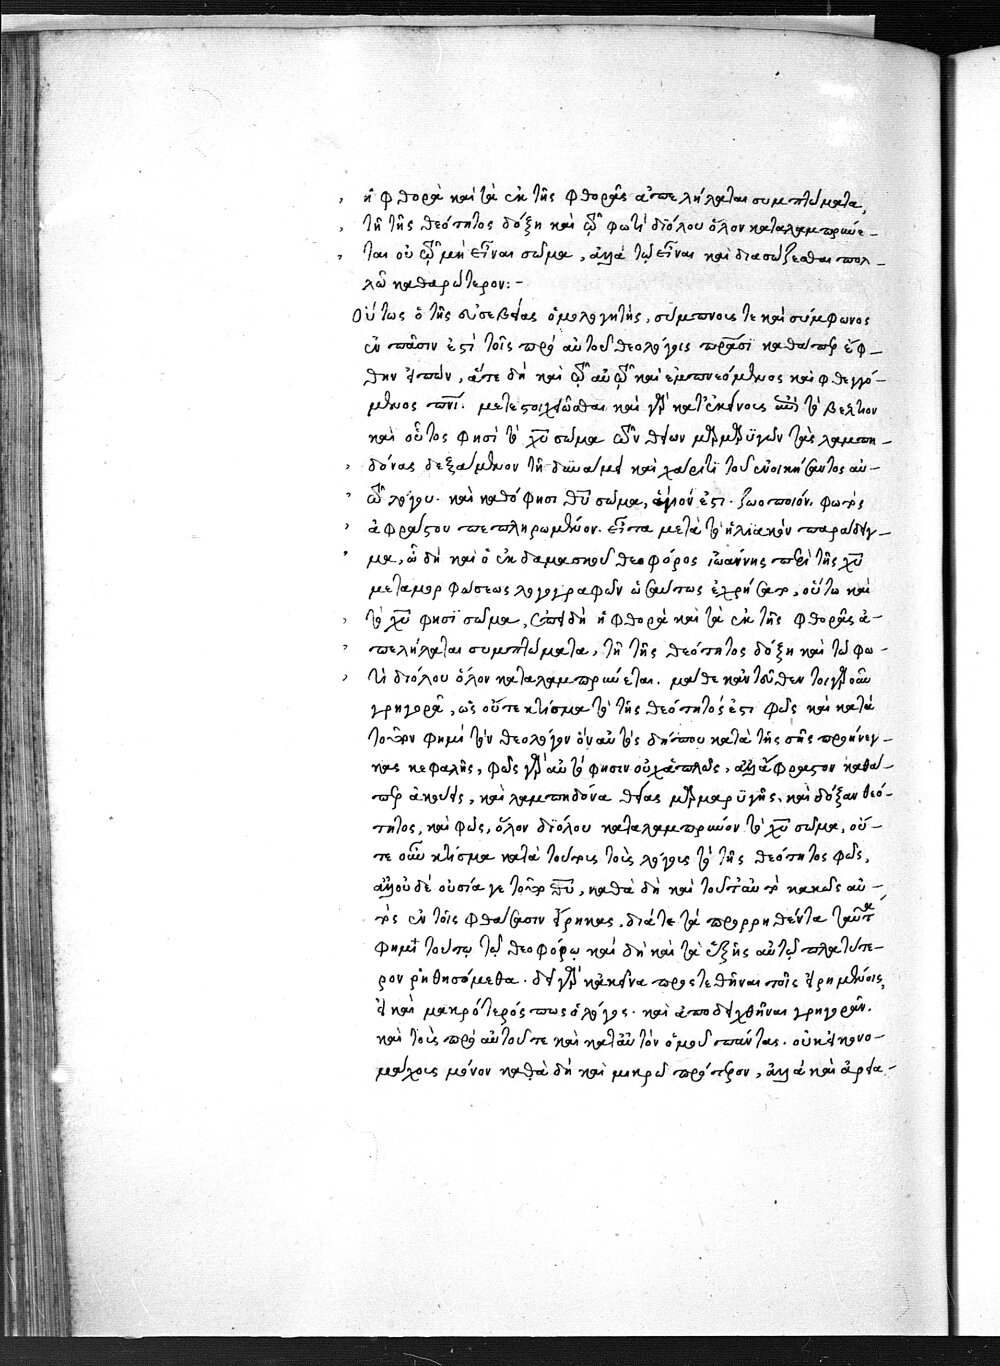 ἡ φθορὰ καὶ τὰ ἐκ τῆς φθορᾶς ἀπελήλαται συμπτώματα,
τῆ τῆς θεότητος δόξη καὶ τῶ φωτὶ διόλου ὅλον καταλαμπρύνε-
ται οὐ τῶ μὴ εἶναι σῶμα, ἀλλὰ τῶ εἶναι καὶ διασώζεσθαι πολ-
λῶ καθαρώτερον:-
Οὕτως ὁ τῆς εὐσεβείας ὁμολογητὴς, σύμπνους τε καὶ σύμφωνος
ἐν πᾶσιν ἐστὶ τοῖς πρὸ αὐτοῦ θεολόγοις πατράσι καθάπερ ἔφ-
θην εἰπών, ἅτε δὴ καὶ τῶ αὐτῶ καὶ ἐμπνεόμενος καὶ φθεγγό-
μενος πνι. μετεστοιχειῶσθαι καὶ γὰρ κατ' ἐκείνους τὸ βέλτιον
καὶ οὗτος φησὶ τὸ χυ σῶμα τῶν θείων μαρμαρυγῶν τὰς λαμπη-
δόνας δεξάμενον τῆ δυνάμει καὶ χάριτι τοῦ ἐνοικήσαντος αὐ-
τῶ λόγου. καὶ καθό φησι θυ σῶμα, ἅγιόν ἐστι. ζωοποιόν. φωτὸς
ἀφράστου πεπληρωμένον. εἶτα μετὰ τὸ ἡλιακὸν παράδειγ-
μα, ὧ δὴ καὶ ὁ ἐκ δαμασκοῦ θεοφόρος ἰωάννης περὶ τῆς χυ
μεταμορφώσεως λογογραφῶν ὡσαύτως ἐχρήσατο, οὕτω καὶ
τὸ χυ φησὶ σῶμα, ἐπειδὴ ἡ φθορὰ καὶ τὰ ἐκ τῆς φθορᾶς ἀ-
πελήλαται συμπτώματα, τῆ τῆς θεότητος δόξη καὶ τῶ φω-
τὶ διόλου ὅλον καταλαμπρύνεται. μάθε κἀντεῦθεν τοιγαροῦν
γρηγορᾶ, ὡς οὔτε κτίσμα τὸ τῆς θεότητός ἐστι φῶς καὶ κατὰ
τοῦτον φημὶ τὸν θεολόγον ὃν αὐτὸς δήπου κατὰ τῆς σῆς προήνεγ-
κας κεφαλῆς, φῶς γὰρ αὐτό φησιν οὐχ ἁπλῶς, ἀλλ' ἄφραστον καθά-
περ ἀκούεις, καὶ λαμπηδόνα θείας μαρμαρυγῆς. καὶ δόξαν θεό-
τητος, καὶ φῶς, ὅλον διόλου καταλαμπρύνον τὸ χυ σῶμα, οὔ-
τε οὖν κτίσμα κατὰ τούτους τοὺς λόγους τὸ τῆς θεότητος φῶς,
ἀλλ' οὐδὲ οὐσία γε τοῦτο θυ, καθὰ δὴ καὶ τοῦτ' αὐτὸ κακῶς αὐ-
τὸς ἐν τοῖς φθάσασιν εἴρηκας, διά τε τὰ προρρηθέντα ταῦτα
φημὶ τούτῳ τῷ θεοφόρῳ καὶ δὴ καὶ τὰ ἑξῆς αὐτῷ πλατύτε-
ρον ῥηθησόμεθα. δεῖ γὰρ κἀκεῖνα προστεθῆναι τοῖς εἰρημένοις,
εἰ καὶ μακρότερός πως ὁ λόγος. καὶ ἀποδειχθῆναι γρηγορᾶν.
καὶ τοῖς πρὸ αὐτοῦ τε καὶ κατ' αὐτὸν ὁμοῦ πάντας. οὐκ εἰκονο-
μάχοις μόνον καθὰ δὴ καὶ μικρῶ πρότερον, ἀλλὰ καὶ ἀρεια-